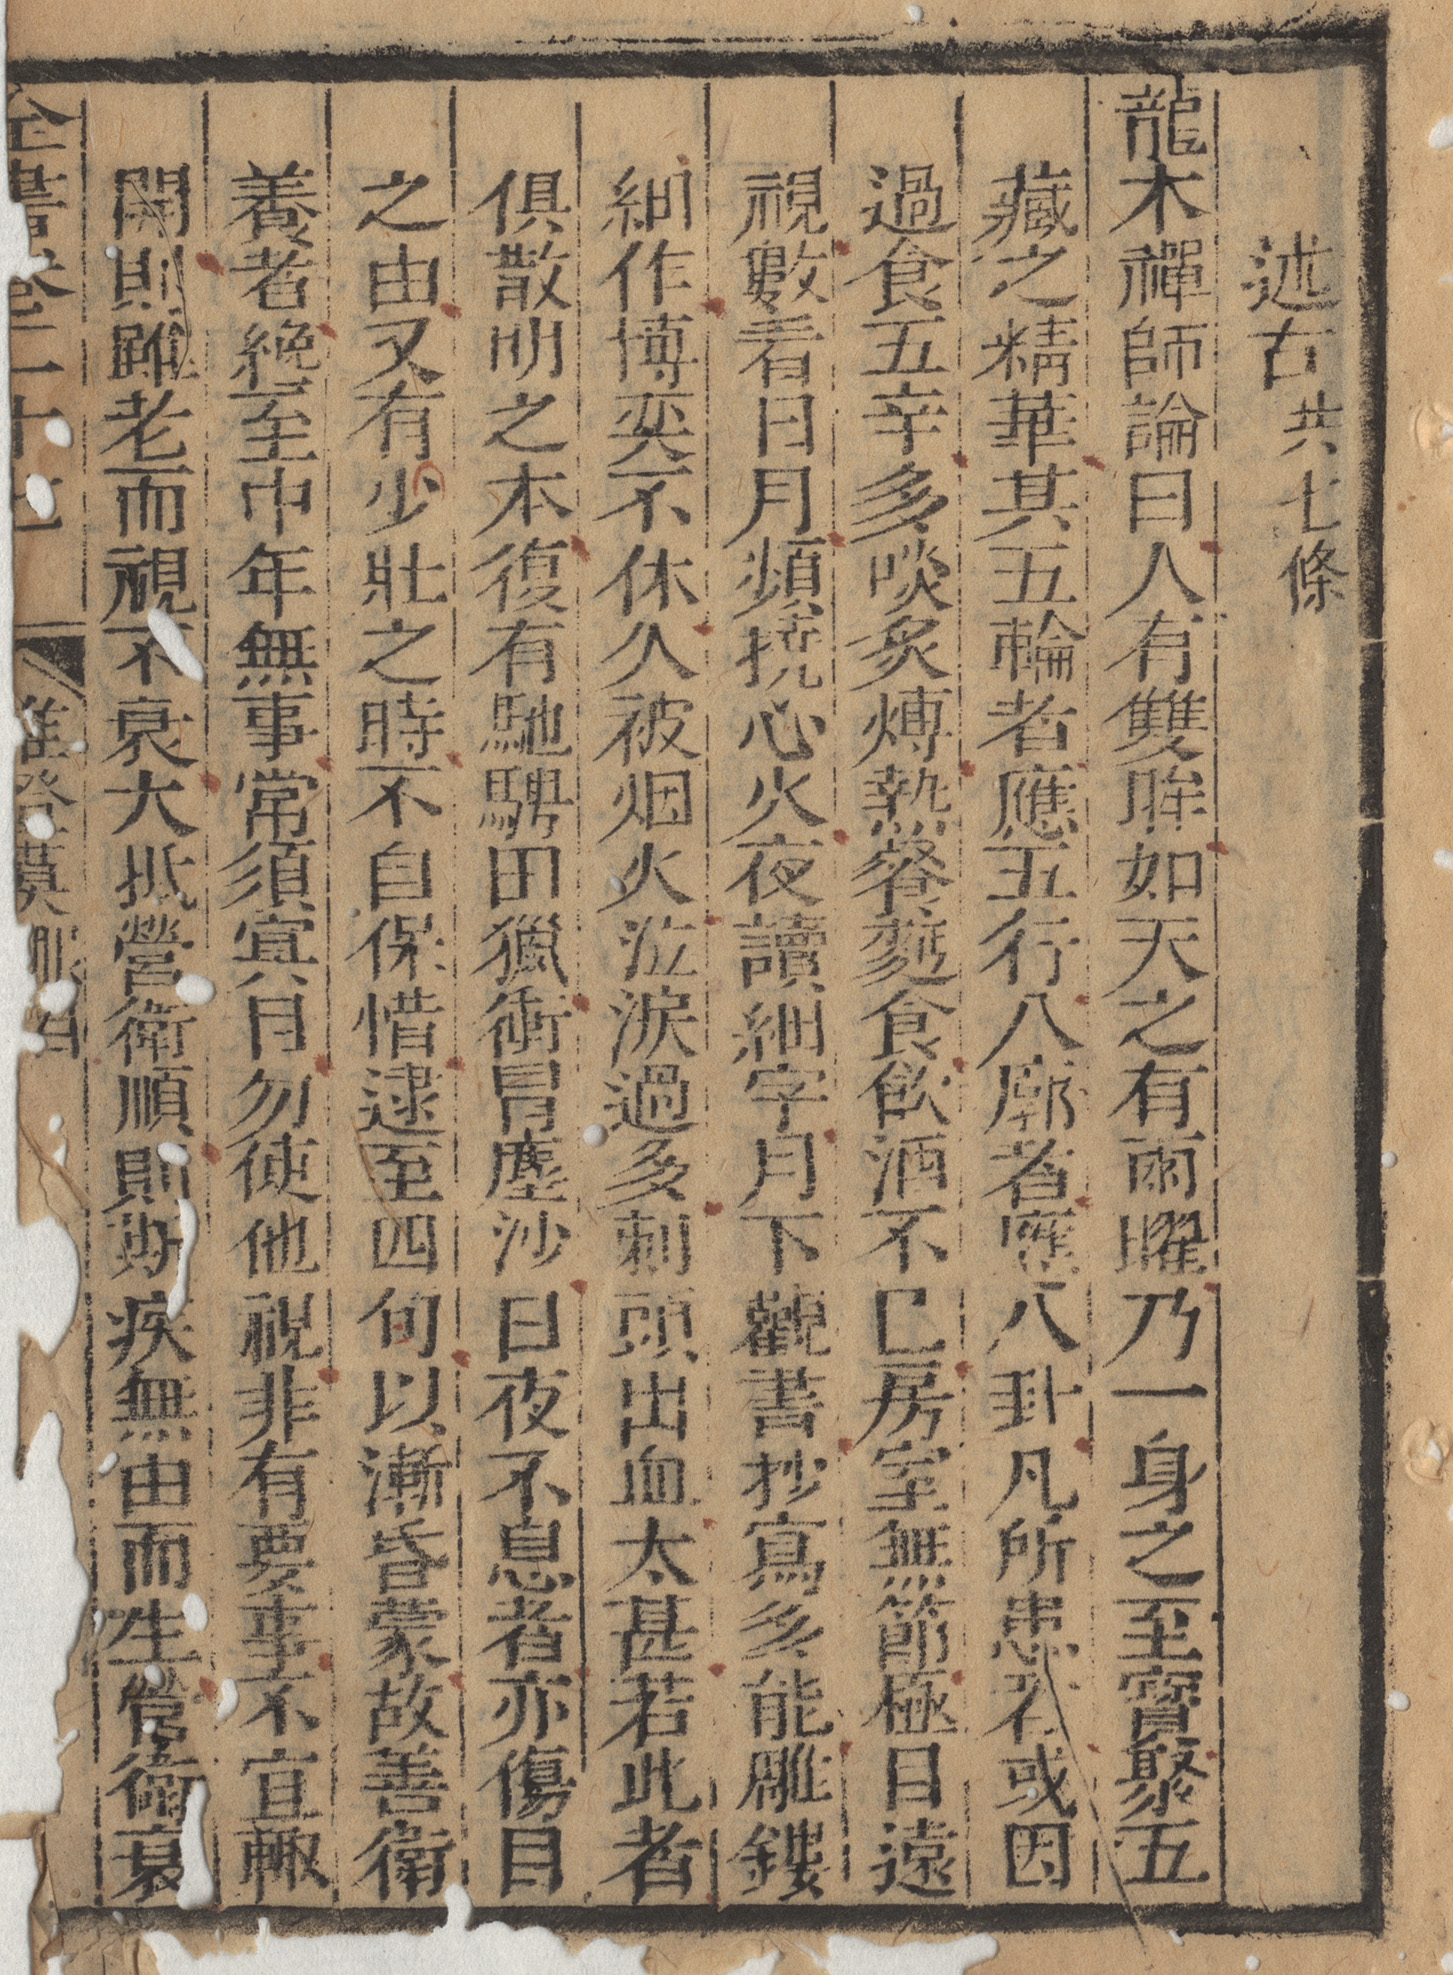 述古共七條
龍木禪師論曰人有雙眸如天之有兩曜乃一身之至寳聚五
藏之精華其五輪者應五行八廓者應八卦凡所患者或因
過食五辛多啖炙煿熱餐麪食飲酒不巳房室無節極目遠
視數看日月頻撓心火夜讀細字月下觀書抄寫多能雕鏤
細作博奕不休久被烟火泣淚過多刺頭出血太甚若此者
俱散明之本復有馳騁田獵衝冐塵沙日夜不息者亦傷目
之由又有少壯之時不自保惜逮至四旬以漸昏蒙故善衛
養者纔至中年無事常須寘目勿使他視非有要事不宜輙
開則雖老而視不衰大抵營衛順則斯疾無由而生營衛衰
全書卷二十七 准登謨 眼目